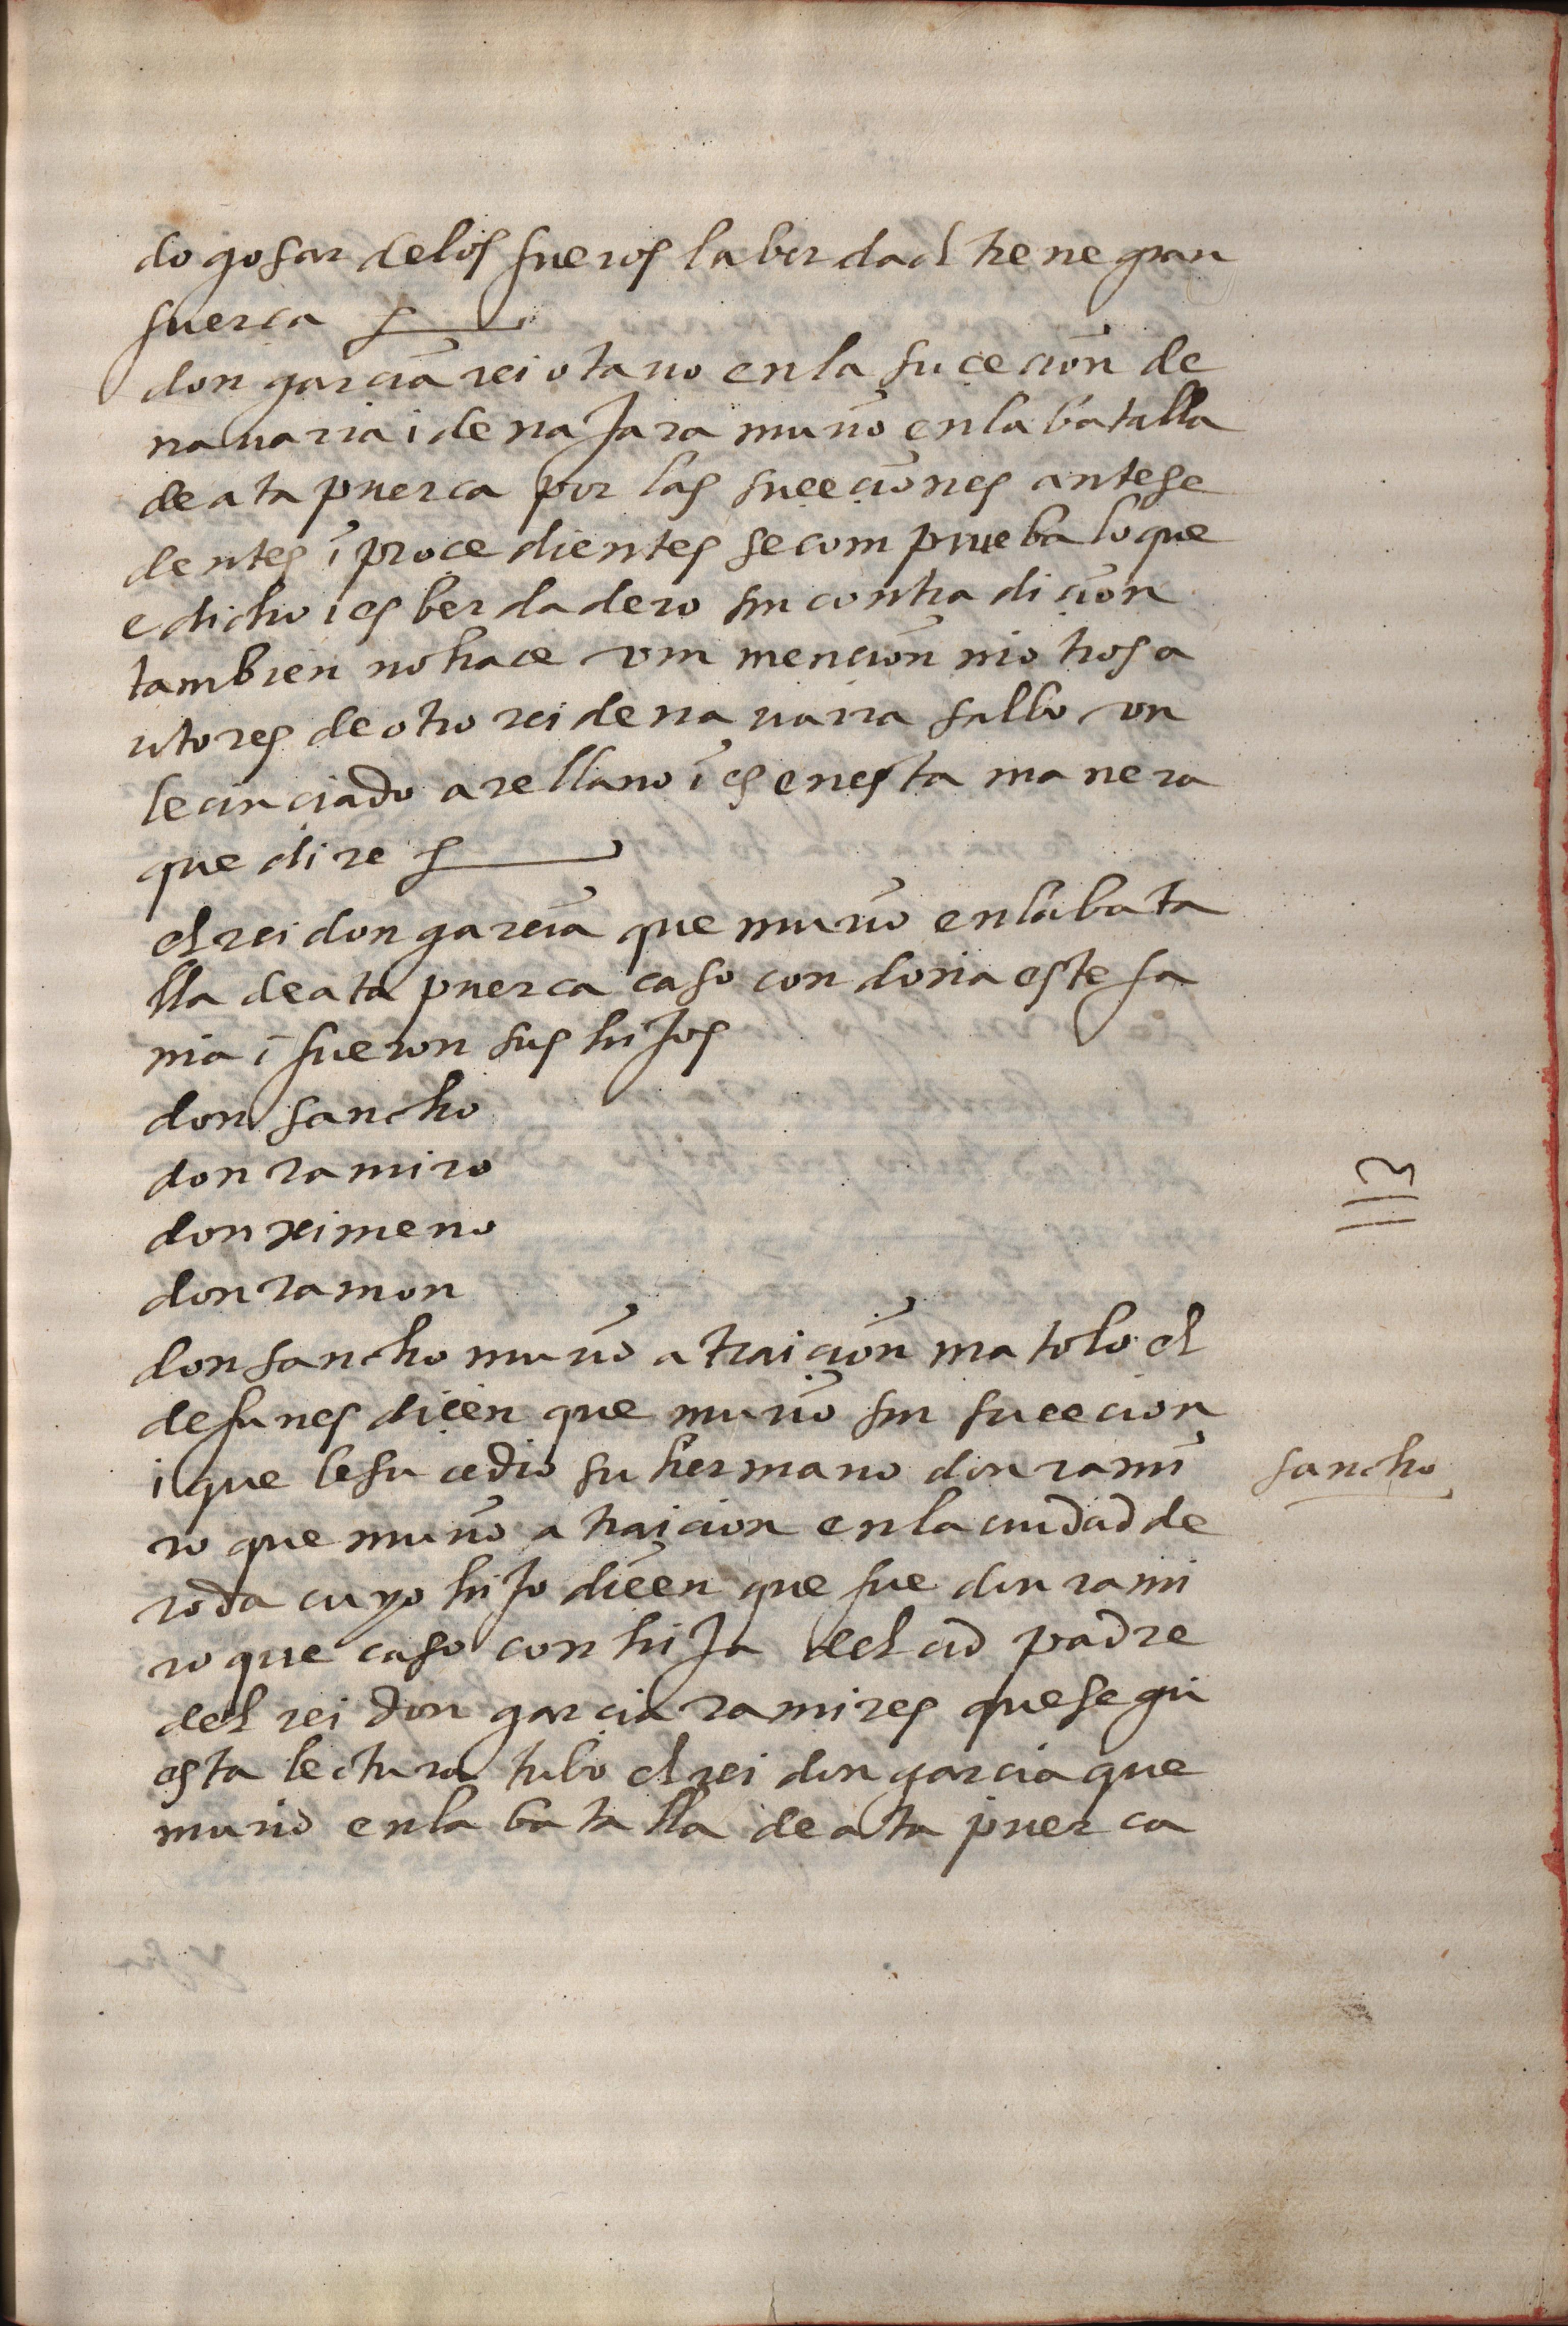 do gosar de los fueros la berdad tiene gran
fuerça
don garcia rei otavo en la suçecion de
navarra i de naJara murio en la batalla
de ata puerca por las suceciones antese
dentes i proce dientes se com prueba lo que
e dicho i es berdadero sin contra dicion
tambien no hace vm mencion ni otros a
utores de otro rei de navarra salbo un
lecinciado arellano i es en esta manera
que dire
el rei don garcia que murio en la bata
lla de ata puerca caso con doña estefa
nia i fueron sus hiJos
don sancho
don ramiro
don ximeno
don ramon
don sancho murio a traiçion matolo el
de funes dicen que murio sin sucecion
i que le sucedio su hermano don rami
sancho
ro que murio a traicion en la ciudad de
roda cuyo hiJo dicen que fue don rami
ro que caso con hiJa del cid padre
del rei don garcia ramires que segū
esta lectura tubo el rei don garcia que
murio en la batalla de ata puerca
113